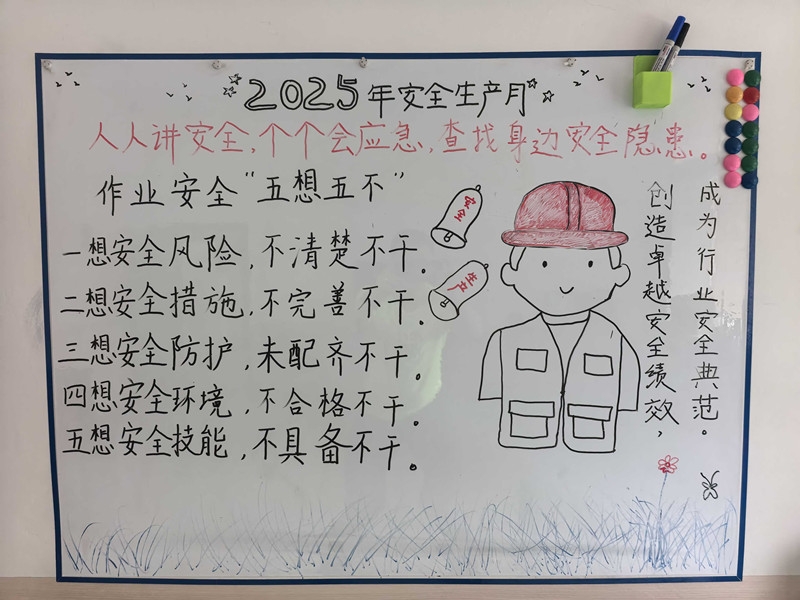 2025年安全生产月
人人讲安全，个个会应急，查找身边安全隐患。
作业安全“五想五不”
一想安全风险，不清楚不干。
二想安全措施，不完善不干。
三想安全防护，未配齐不干。
四想安全环境，不合格不干。
五想安全技能，不具备不干。
安全
生产
创造卓越安全绩效，
成为行业安全典范。